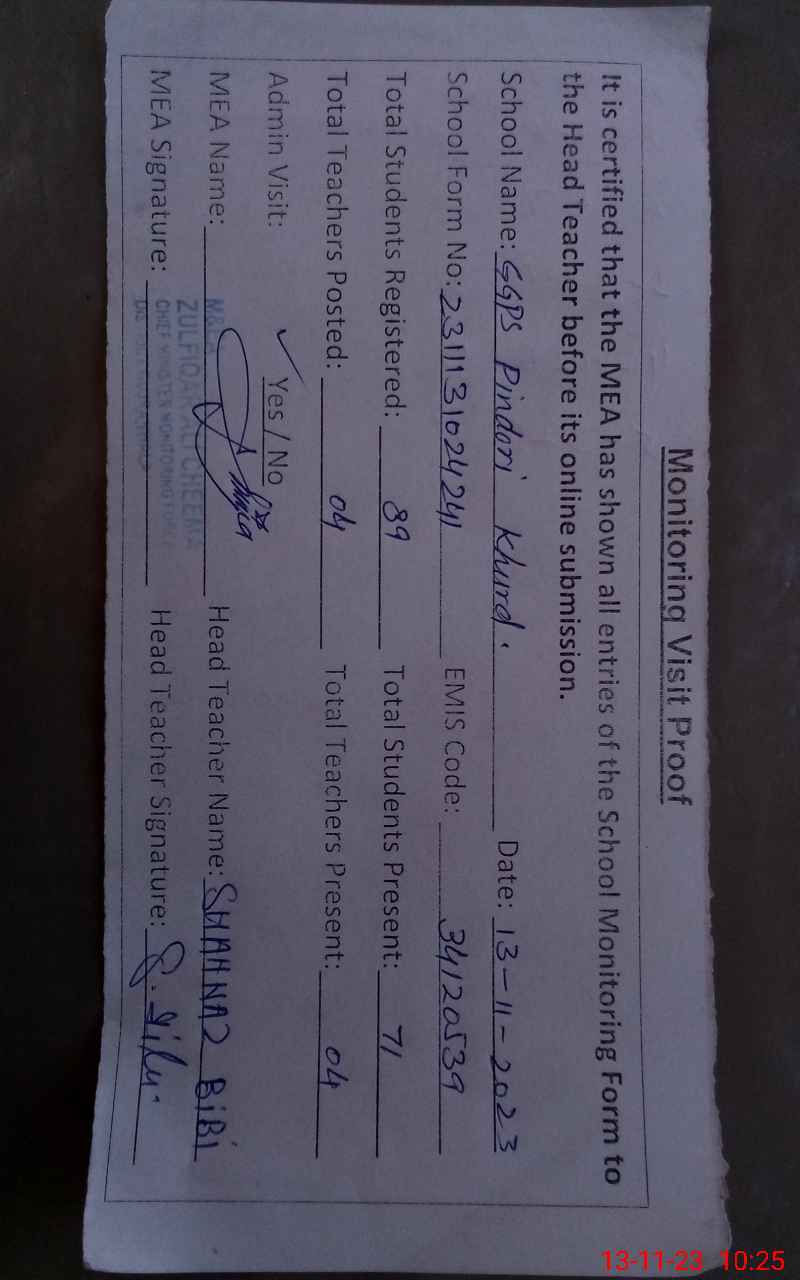 Monitoring Visit Proof
It is certified that the MEA has shown all entries of the School Monitoring Form to
the Head Teacher before its online submission.
School Name: GGPS Pindori Khurd. Date: 13-11-2023
School Form No: 2311131024241 EMIS Code: 34120539
Total Students Registered: 89 Total Students Present: 71
Total Teachers Posted: 04 Total Teachers Present: 04
Admin Visit: ✓ Yes / No
MEA Name: Head Teacher Name: SHAHNAZ BiBi
MEA Signature: Head Teacher Signature:
ZULFIQAR ALI CHEEMA
CHIEF MINISTER MONITORING FORCE
13-11-23 10:25